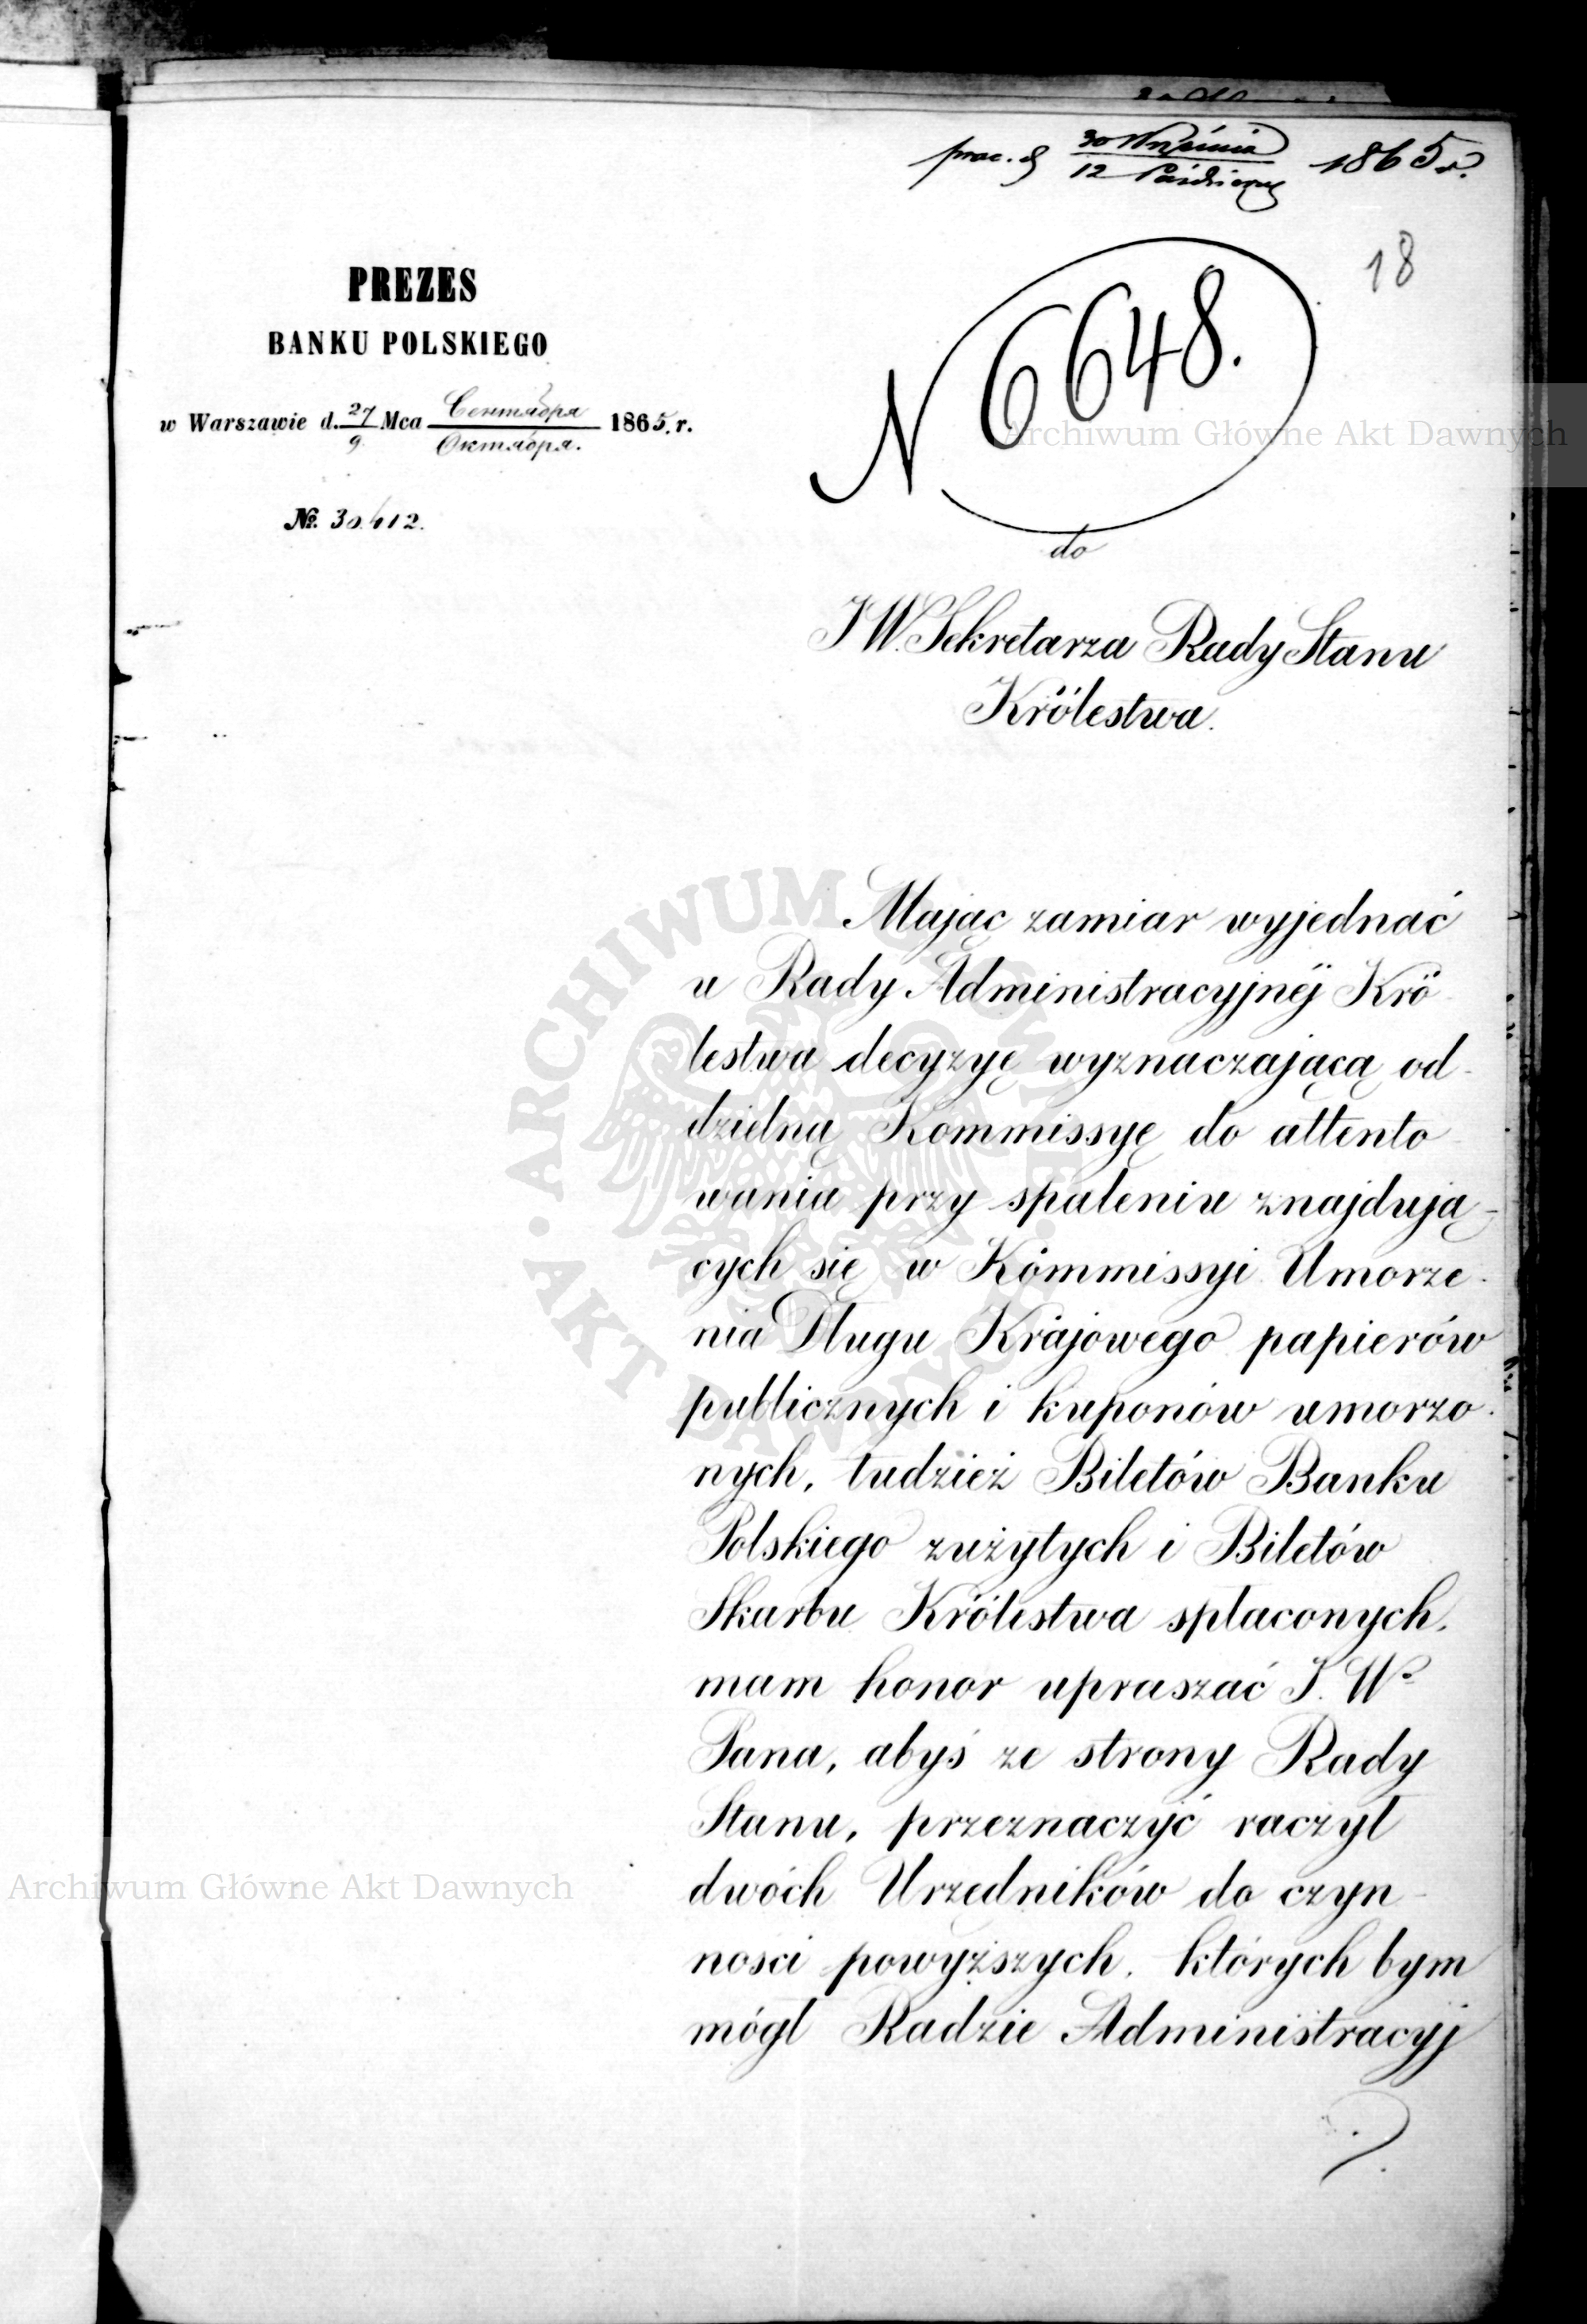 30 Września
12 Październ
1865 r.
18
PREZES
BANKU POLSKIEGO
w Warszawie d. 27/9 Mca Сентября/Октября. 1865. r.
№. 30,412.
N 6648.
do
JW. Sekretarza Rady Stanu
Królestwa.
Mając zamiar wyjednać
u Rady Administracyjnéj Kró
lestwa decyzyę wyznaczającą od-
dzielną Kommissyę do attento
wania przy spaleniu znajdują-
cych się w Kommissyi Umorze-
nia Długu Krajowego papierów
publicznych i kuponów umorzo-
nych, tudzież Biletów Banku
Polskiego zużytych i Biletów
Skarbu Królestwa spłaconych,
mam honor upraszać J. W.
Pana, abyś ze strony Rady
Stanu, przeznaczyć raczył
dwóch Urzędników do czyn-
ności powyższych, których bym
mógł Radzie Administracyj
Archiwum Główne Akt Dawnych
Archiwum Główne Akt Dawnych